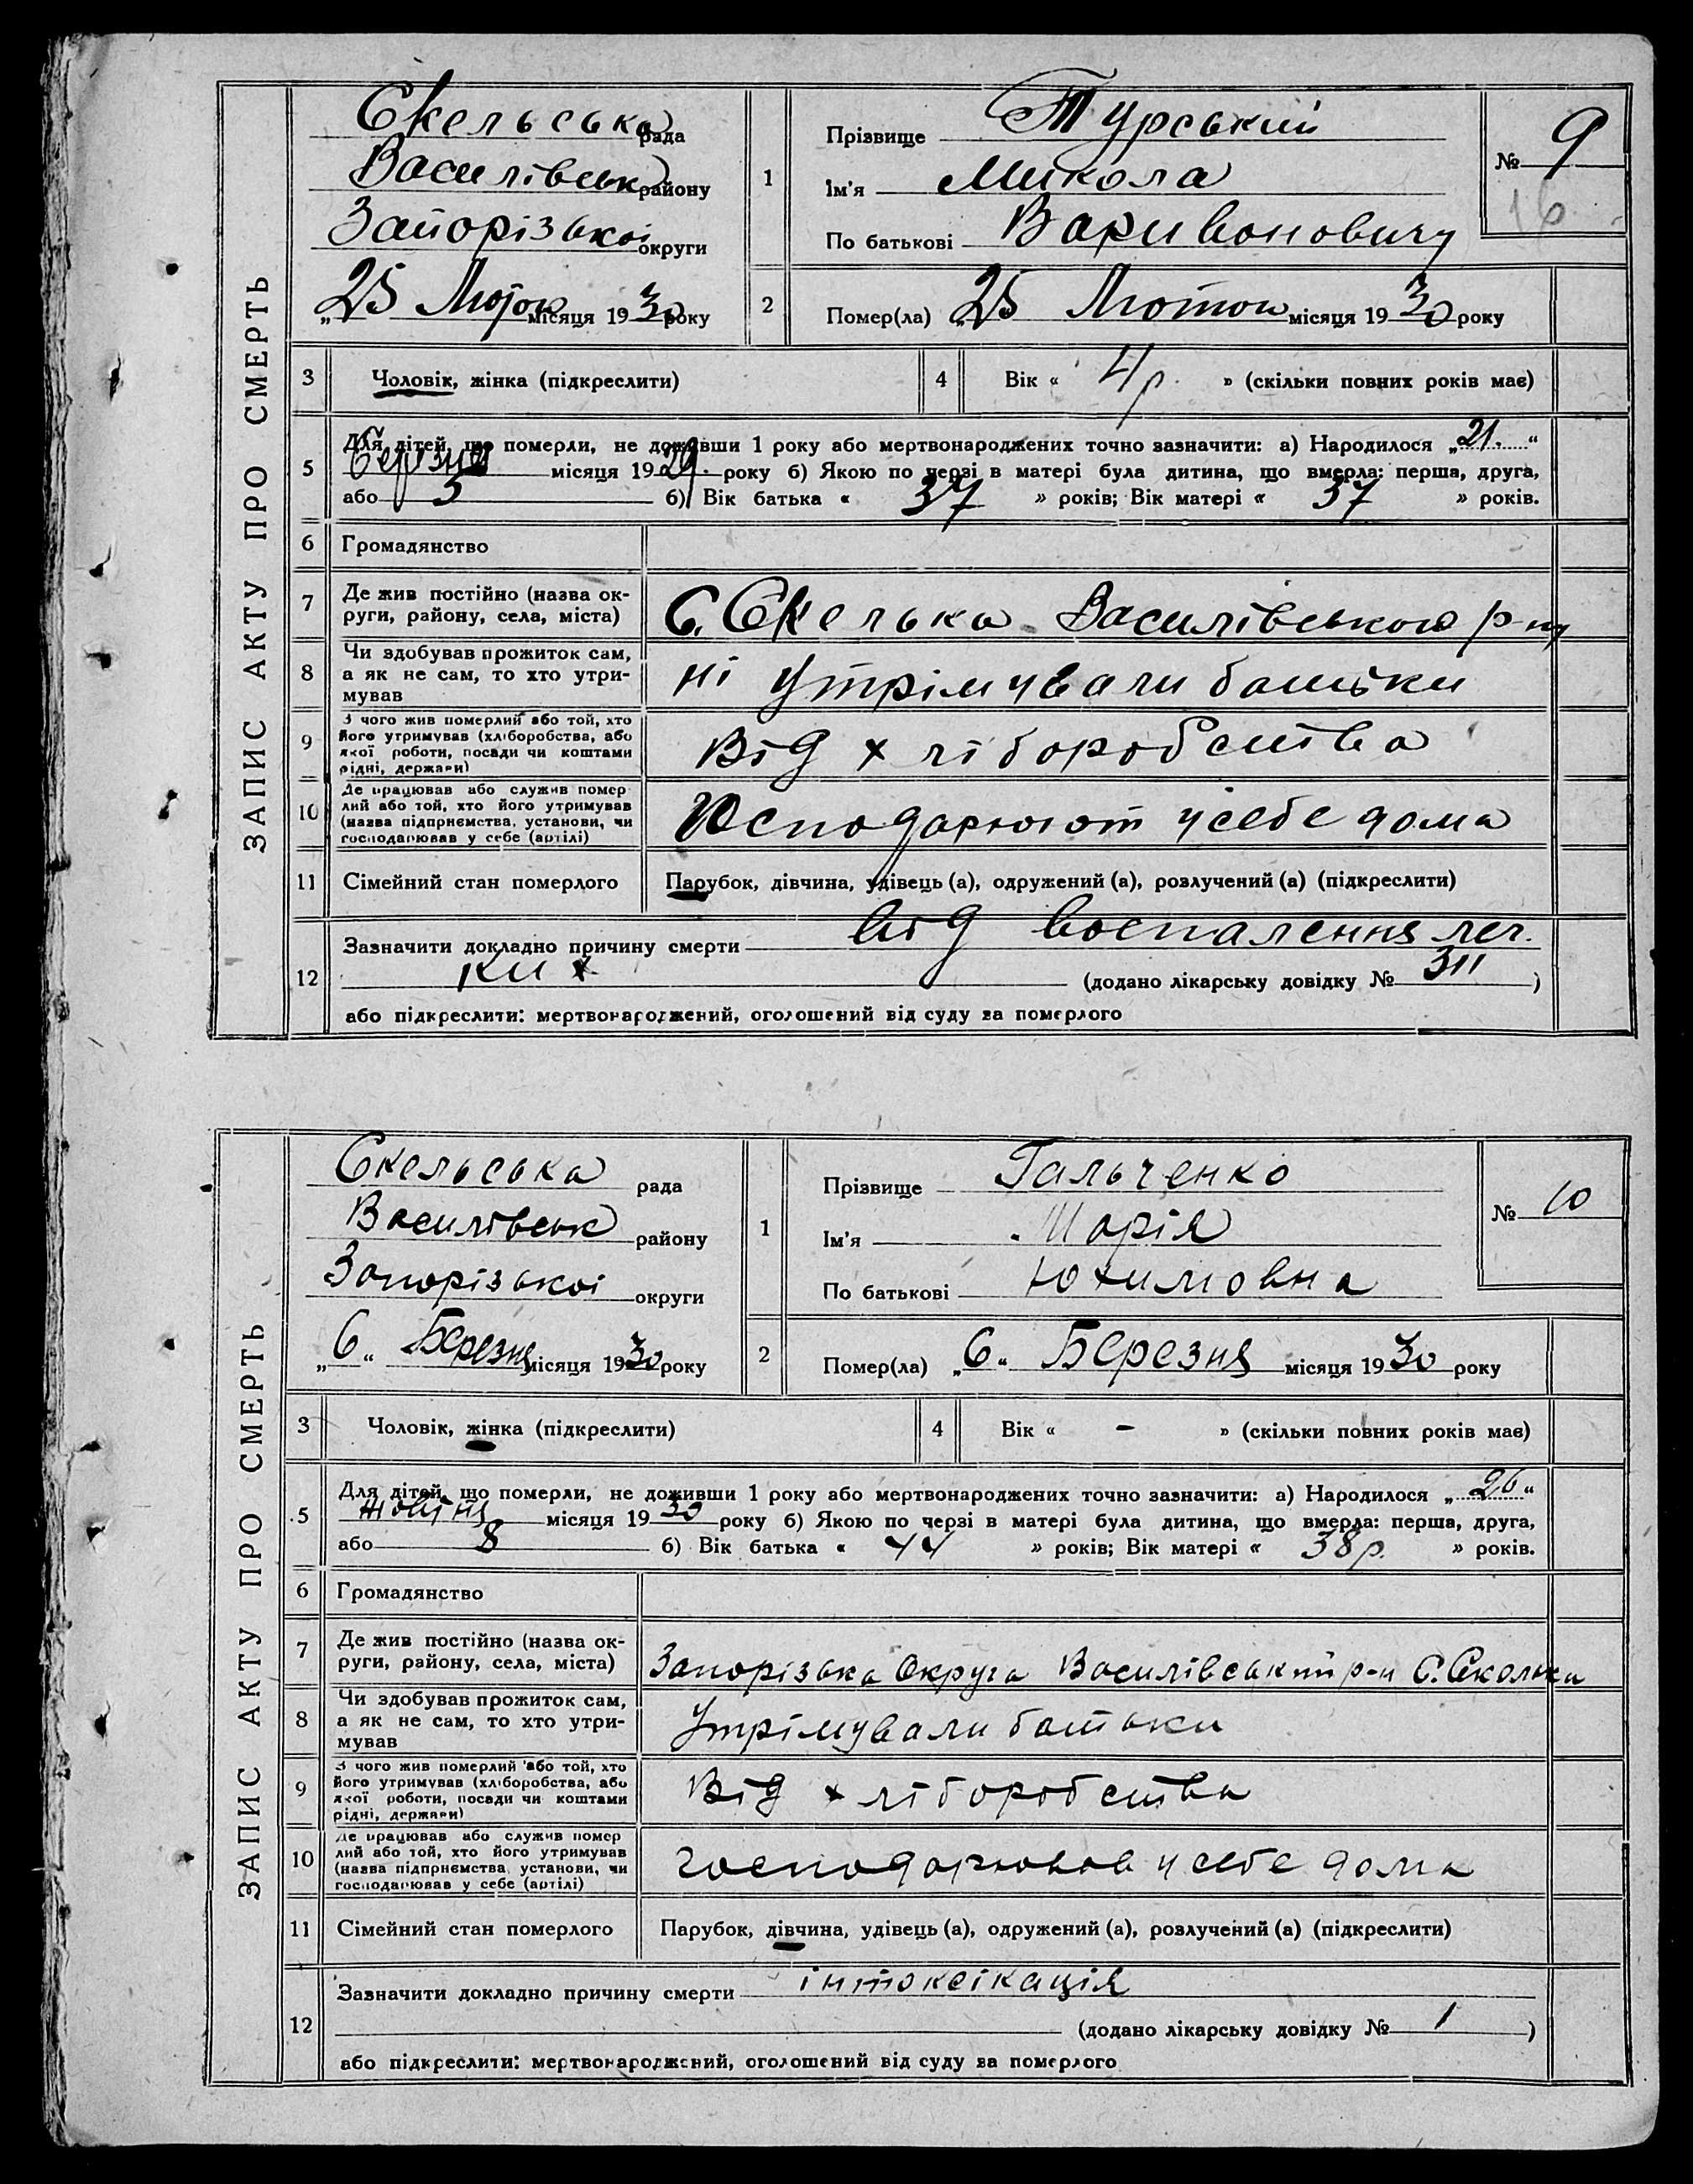 ЗАПИС АКТУ ПРО СМЕРТЬ
Скельська рада
Василівськ району
Запорізької округи
„25 Лютого місяця 1930 року
1
Прізвище Турський
Ім'я Микола
По батькові Варивонович
№ 9
16
2
Помер(ла) „25 Лютого місяця 1930 року
3 Чоловік, жінка (підкреслити)
4 Вік « 4 р. » (скільки повних років має)
5 Для дітей, що померли, не доживши 1 року або мертвонароджених точно зазначити: а) Народилося „21.“
березня місяця 1929. року б) Якою по черзі в матері була дитина, що вмерла: перша, друга,
або 5 б) Вік батька « 37 » років; Вік матері « 37 » років.
6 Громадянство
7 Де жив постійно (назва ок-
руги, району, села, міста)
С. Скелька Василівського р-ну
8 Чи здобував прожиток сам,
а як не сам, то хто утри-
мував
ні утрімували батьки
9 З чого жив померлий або той, хто
його утримував (хліборобства, або
якої роботи, посади чи коштами
рідні, держави)
Від хліборобства
10 Де працював або служив помер
лий або той, хто його утримував
(назва підприємства, установи, чи
господарював у себе (артілі)
Господарюют у себе дома
11 Сімейний стан померлого
Парубок, дівчина, удівець (а), одружений (а), розлучений (а) (підкреслити)
12 Зазначити докладно причину смерти від воспалення лег.
ких (додано лікарську довідку № 311)
або підкреслити: мертвонароджений, оголошений від суду за померлого
ЗАПИС АКТУ ПРО СМЕРТЬ
Скельська рада
Василівськ району
Запорізької округи
„6“ Березня місяця 1930 року
1
Прізвище Гальченко
Ім'я Марія
По батькові Юхимовна
№ 10
2
Помер(ла) „6“ Березня місяця 1930 року
3 Чоловік, жінка (підкреслити)
4 Вік « - » (скільки повних років має)
5 Для дітей, що померли, не доживши 1 року або мертвонароджених точно зазначити: а) Народилося „26“
жовтня місяця 1930 року б) Якою по черзі в матері була дитина, що вмерла: перша, друга,
або 8 б) Вік батька « 44 » років; Вік матері « 38 р. » років.
6 Громадянство
7 Де жив постійно (назва ок-
руги, району, села, міста)
Запорізька Округа Василівський р-н С. Скелька
8 Чи здобував прожиток сам,
а як не сам, то хто утри-
мував
Утрімували батьки
9 З чого жив померлий або той, хто
його утримував (хліборобства, або
якої роботи, посади чи коштами
рідні, держави)
Від хліборобства
10 Де працював або служив помер
лий або той, хто його утримував
(назва підприємства, установи, чи
господарював у себе (артілі)
господарював у себе дома
11 Сімейний стан померлого
Парубок, дівчина, удівець (а), одружений (а), розлучений (а) (підкреслити)
12 Зазначити докладно причину смерти інтоксікація
(додано лікарську довідку № 1)
або підкреслити: мертвонароджений, оголошений від суду за померлого